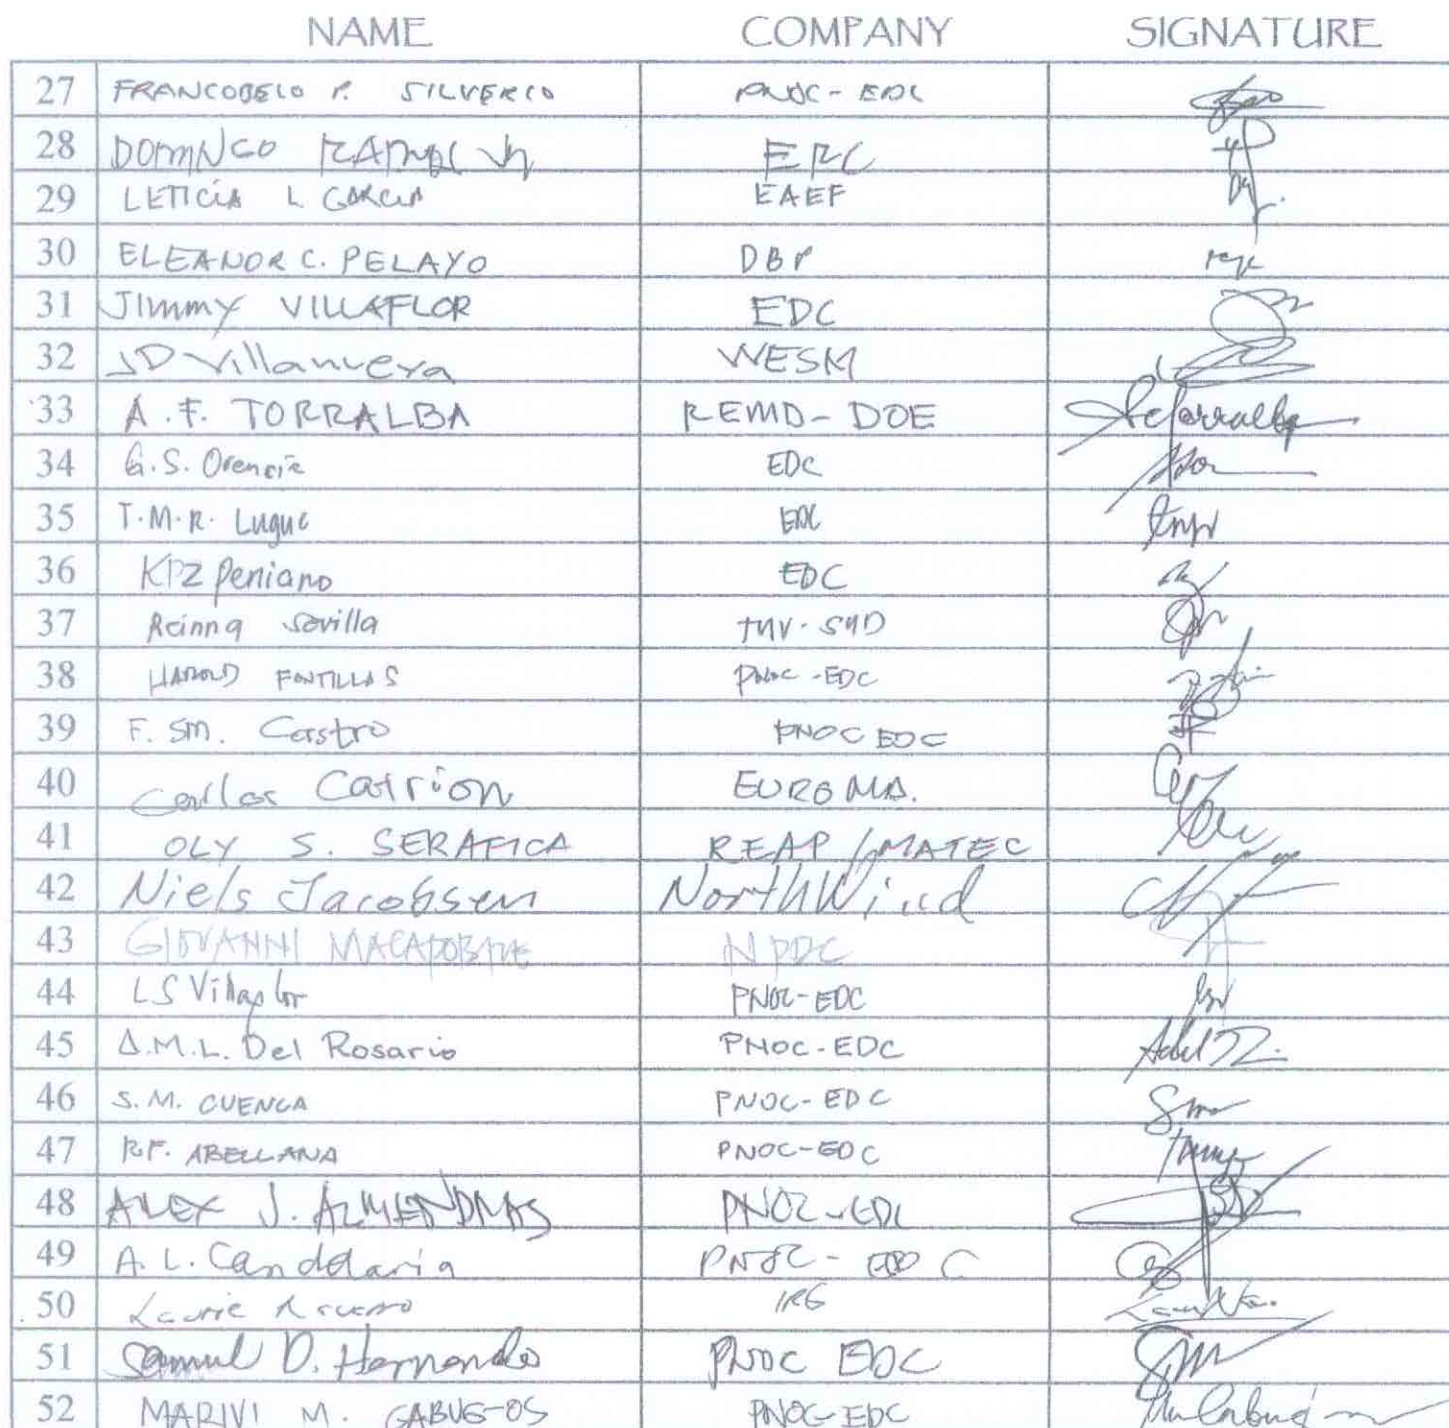 NAME COMPANY SIGNATURE
27 FRANCOBELO P. SILVERIO PNOC-EDC
28 DOMINGO RAMOS Jr ERC
29 LETICIA L GARCIA EAEF
30 ELEANOR C. PELAYO DBP
31 JIMMY VILLAFLOR EDC
32 JD Villanueva WESM
33 A.F. TORRALBA REMD-DOE
34 G.S. Orencia EDC
35 T.M.R. Lugue EDC
36 KPZ Peniano EDC
37 Reinna Sevilla TUV-SUD
38 HAROLD FONTILLAS PNOC-EDC
39 F. SM. Castro PNOC EDC
40 Carlos Carrion EUROMA.
41 OLY S. SERAFICA REAP/MATEC
42 Niels Jacobsen NorthWind
43 GIOVANNI NPDC
44 LS Villaflor PNOC-EDC
45 A.M.L. Del Rosario PNOC-EDC
46 S.M. CUENCA PNOC-EDC
47 R.F. ABELLANA PNOC-EDC
48 ALEX J. ALMENDRAS PNOC-EDC
49 A.L. Candelaria PNOC-EDC
50 Laurie IRG
51 Samuel D. Hernando PNOC EDC
52 MARIVI M. GABUG-OS PNOC-EDC